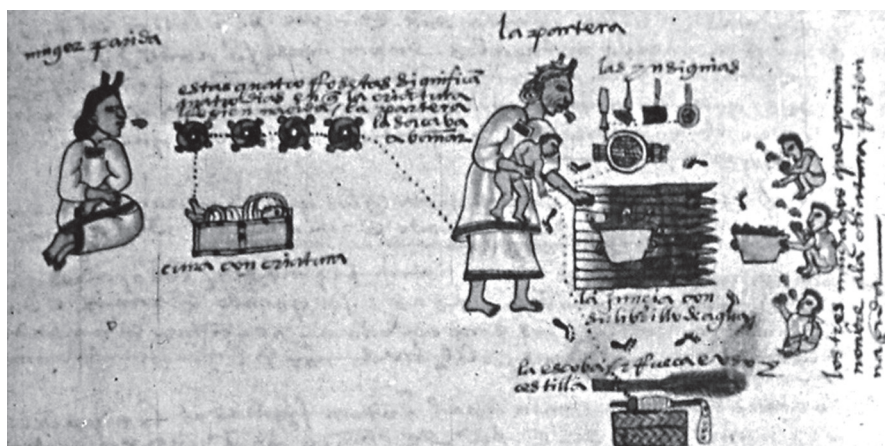 muger parida
estas quatro Rosetas sinifican
quatro dias en q la criatura
rezien nacida / la partera
la sacaba
a bañar
cuna con criatura
la partera
las ynsignias
la juncia con
su librillo de agua
la escoba / Rueca e uso /
cestilla
los tres muchachos que ponian
nombre a la criatura rezien
nazida